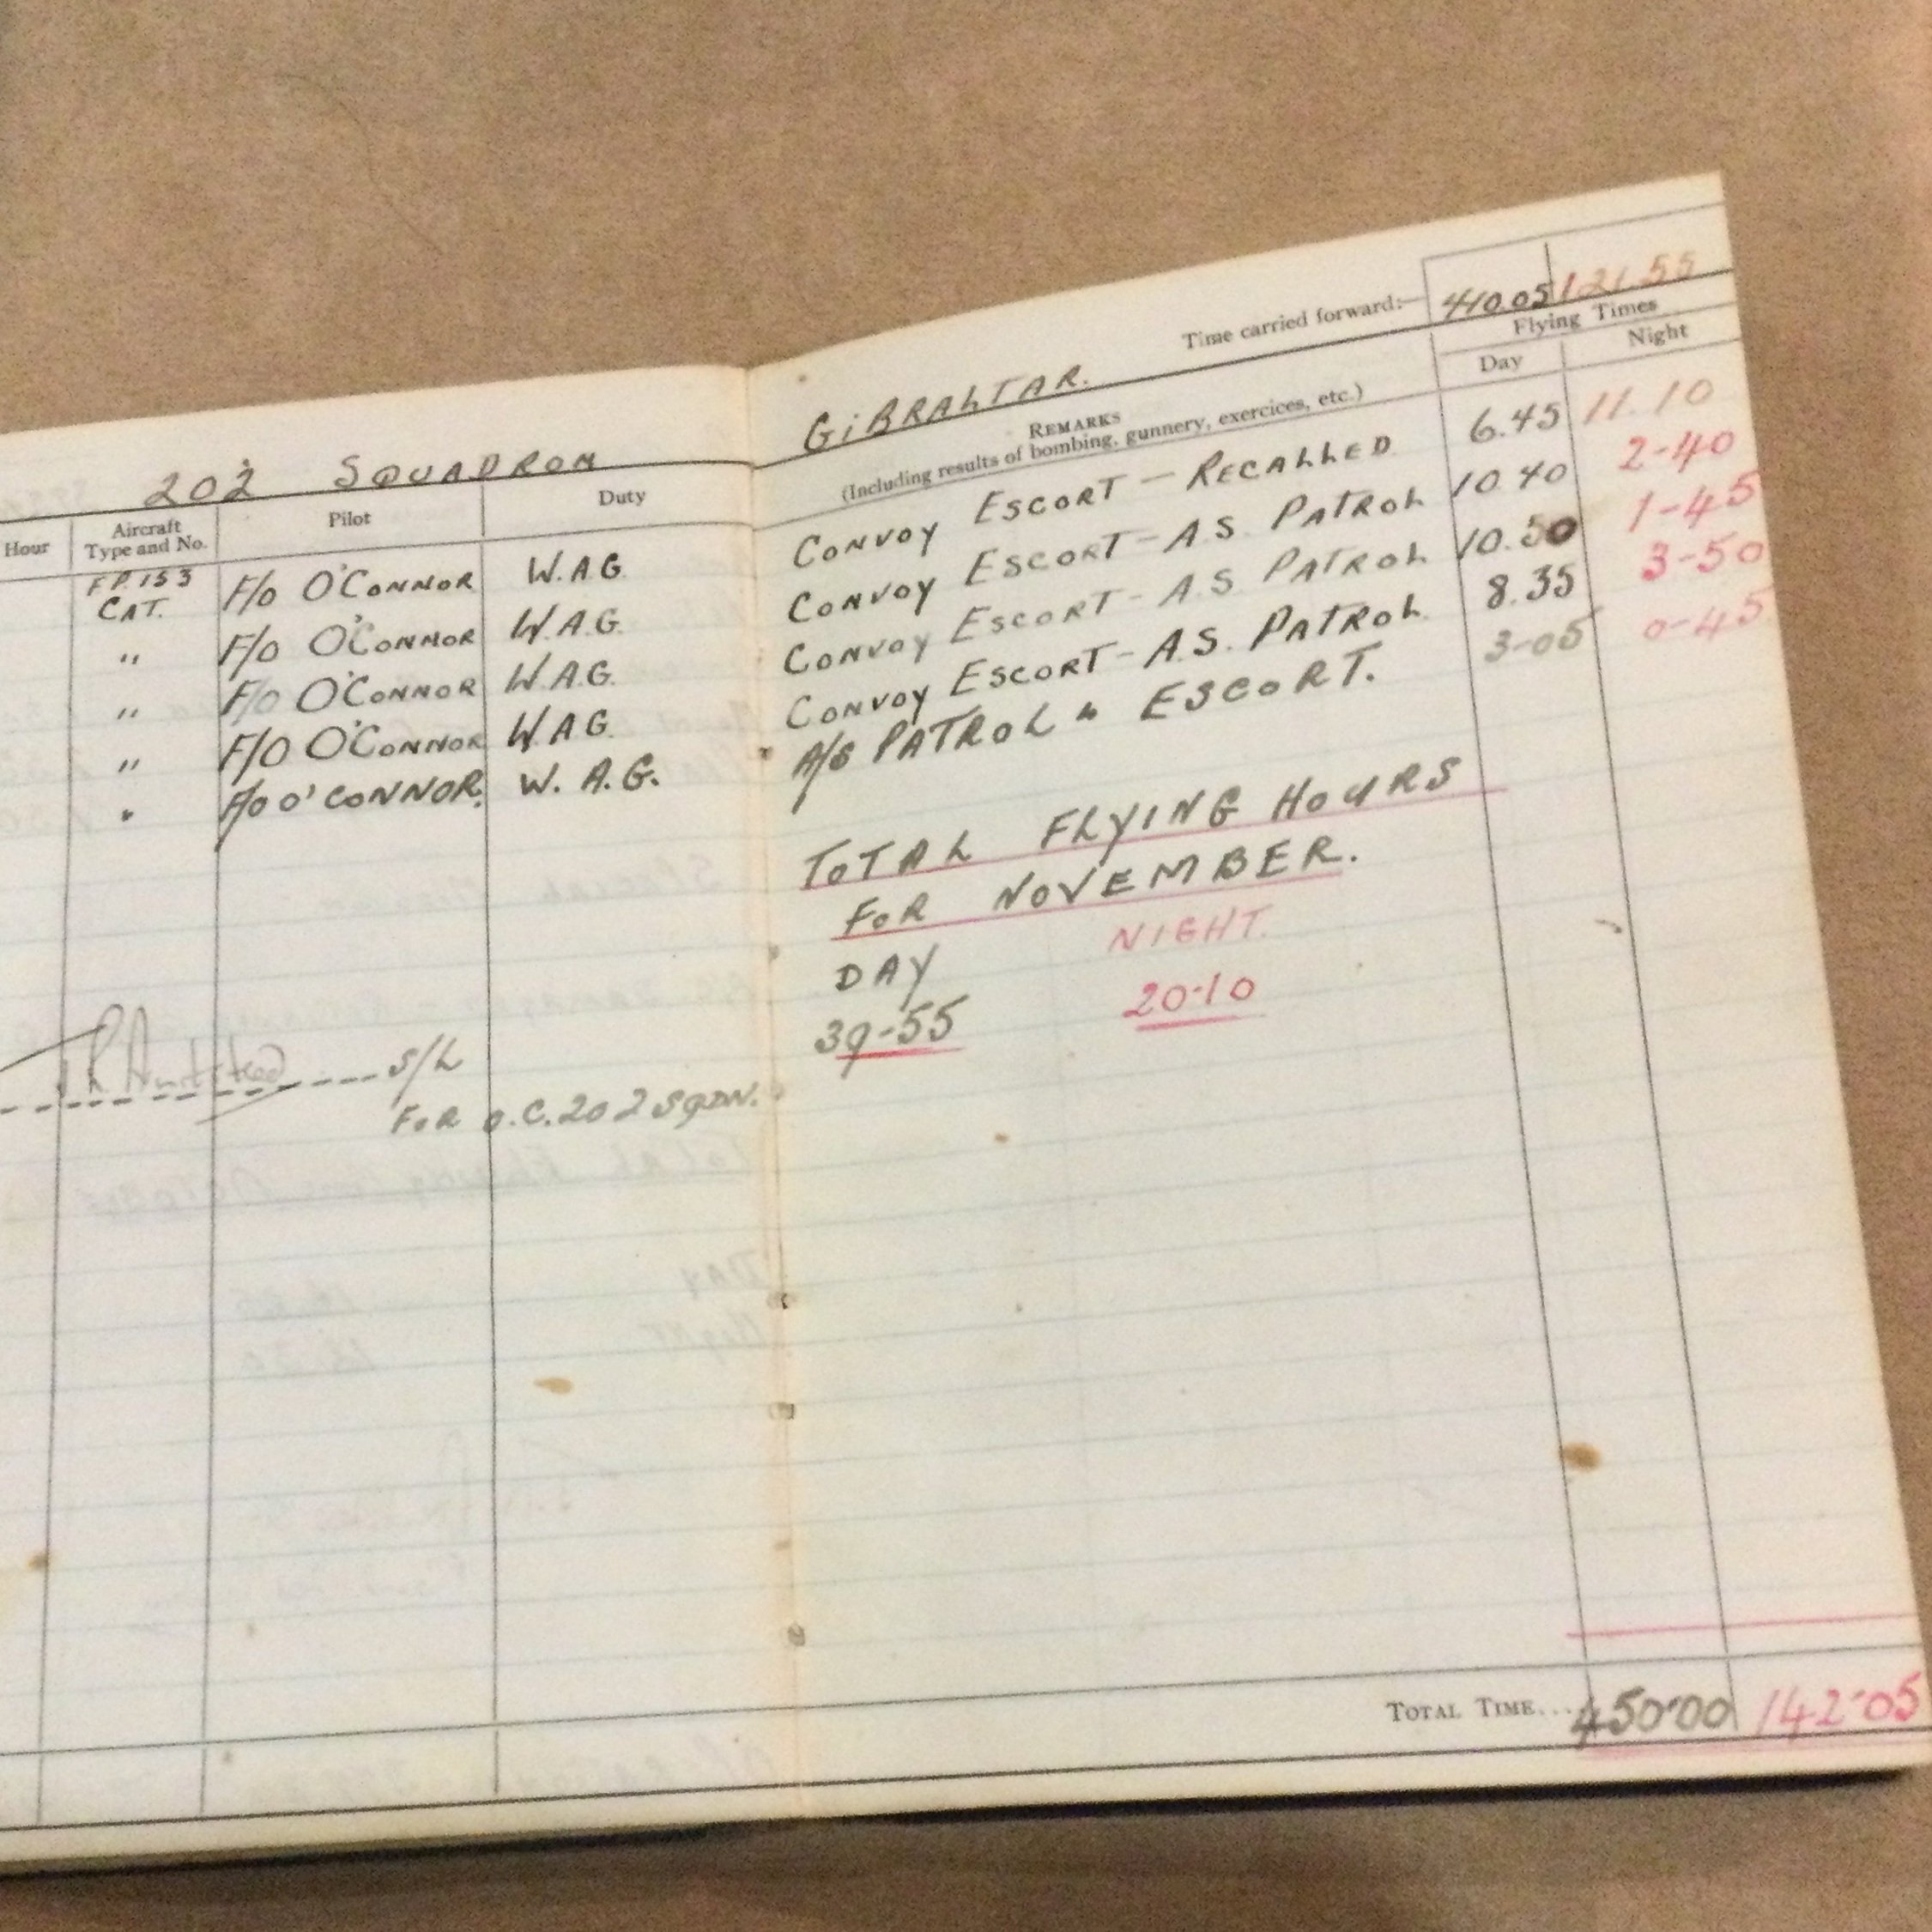 202 SQUADRON
Hour
Aircraft Type and No.
Pilot
Duty
FP.153 CAT. F/O O'CONNOR W.A.G.
" F/O O'CONNOR W.A.G.
" F/O O'CONNOR W.A.G.
" F/O O'CONNOR W.A.G.
" F/O O'CONNOR. W. A. G.
S/L
FOR O.C. 202 SQDN.
GIBRALTAR.
Time carried forward:— 410.05 121.55
REMARKS
(Including results of bombing, gunnery, exercices, etc.)
Flying Times
Day Night
CONVOY ESCORT — RECALLED 6.45 11.10
CONVOY ESCORT - A.S. PATROL 10.40 2-40
CONVOY ESCORT - A.S. PATROL 10.50 1-45
CONVOY ESCORT - A.S. PATROL 8.35 3-50
A/S PATROL & ESCORT. 3-05 0-45
TOTAL FLYING HOURS
FOR NOVEMBER.
DAY NIGHT.
39-55 20-10
TOTAL TIME... 450-00 142-05